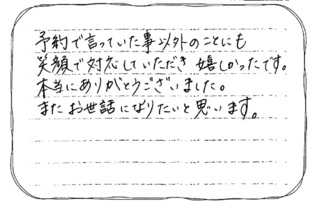 予約で言っていた事以外のことにも
笑顔で対応していただき嬉しかったです。
本当にありがとうございました。
またお世話になりたいと思います。